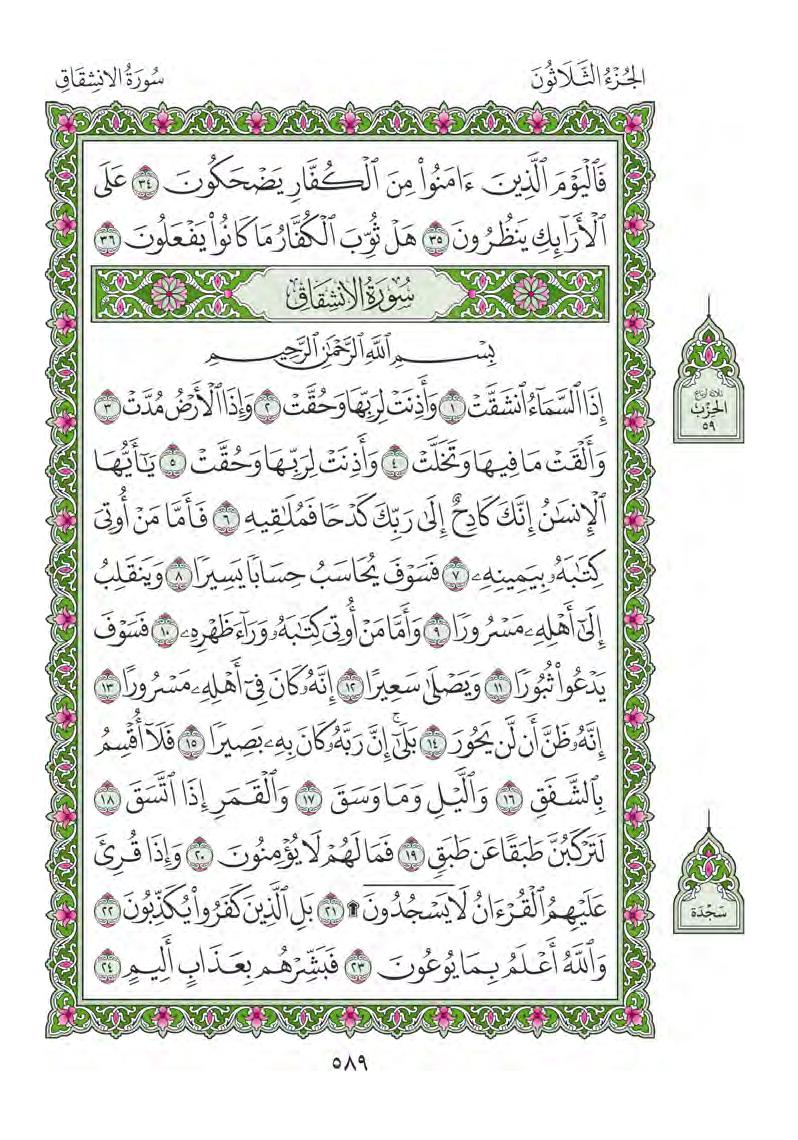 الجُزْءُ الثَّلَاثُونَ
سُورَةُ الانشِقَاقِ
فَٱلْيَوْمَ ٱلَّذِينَ ءَامَنُوا۟ مِنَ ٱلْكُفَّارِ يَضْحَكُونَ ٣٤ عَلَى
ٱلْأَرَآئِكِ يَنظُرُونَ ٣٥ هَلْ ثُوِّبَ ٱلْكُفَّارُ مَا كَانُوا۟ يَفْعَلُونَ ٣٦
سُورَةُ الانشِقَاقِ
بِسْمِ ٱللَّهِ ٱلرَّحْمَٰنِ ٱلرَّحِيمِ
إِذَا ٱلسَّمَآءُ ٱنشَقَّتْ ١ وَأَذِنَتْ لِرَبِّهَا وَحُقَّتْ ٢ وَإِذَا ٱلْأَرْضُ مُدَّتْ ٣
وَأَلْقَتْ مَا فِيهَا وَتَخَلَّتْ ٤ وَأَذِنَتْ لِرَبِّهَا وَحُقَّتْ ٥ يَٰٓأَيُّهَا
ٱلْإِنسَٰنُ إِنَّكَ كَادِحٌ إِلَىٰ رَبِّكَ كَدْحًا فَمُلَٰقِيهِ ٦ فَأَمَّا مَنْ أُوتِىَ
كِتَٰبَهُۥ بِيَمِينِهِۦ ٧ فَسَوْفَ يُحَاسَبُ حِسَابًا يَسِيرًا ٨ وَيَنقَلِبُ
إِلَىٰٓ أَهْلِهِۦ مَسْرُورًا ٩ وَأَمَّا مَنْ أُوتِىَ كِتَٰبَهُۥ وَرَآءَ ظَهْرِهِۦ ١٠ فَسَوْفَ
يَدْعُوا۟ ثُبُورًا ١١ وَيَصْلَىٰ سَعِيرًا ١٢ إِنَّهُۥ كَانَ فِىٓ أَهْلِهِۦ مَسْرُورًا ١٣
إِنَّهُۥ ظَنَّ أَن لَّن يَحُورَ ١٤ بَلَىٰٓۚ إِنَّ رَبَّهُۥ كَانَ بِهِۦ بَصِيرًا ١٥ فَلَآ أُقْسِمُ
بِٱلشَّفَقِ ١٦ وَٱلَّيْلِ وَمَا وَسَقَ ١٧ وَٱلْقَمَرِ إِذَا ٱتَّسَقَ ١٨
لَتَرْكَبُنَّ طَبَقًا عَن طَبَقٍ ١٩ فَمَا لَهُمْ لَا يُؤْمِنُونَ ٢٠ وَإِذَا قُرِئَ
عَلَيْهِمُ ٱلْقُرْءَانُ لَا يَسْجُدُونَ ۩ ٢١ بَلِ ٱلَّذِينَ كَفَرُوا۟ يُكَذِّبُونَ ٢٢
وَٱللَّهُ أَعْلَمُ بِمَا يُوعُونَ ٢٣ فَبَشِّرْهُم بِعَذَابٍ أَلِيمٍ ٢٤
ثلاثة أرباع
الحِزْب
٥٩
سَجْدَة
٥٨٩